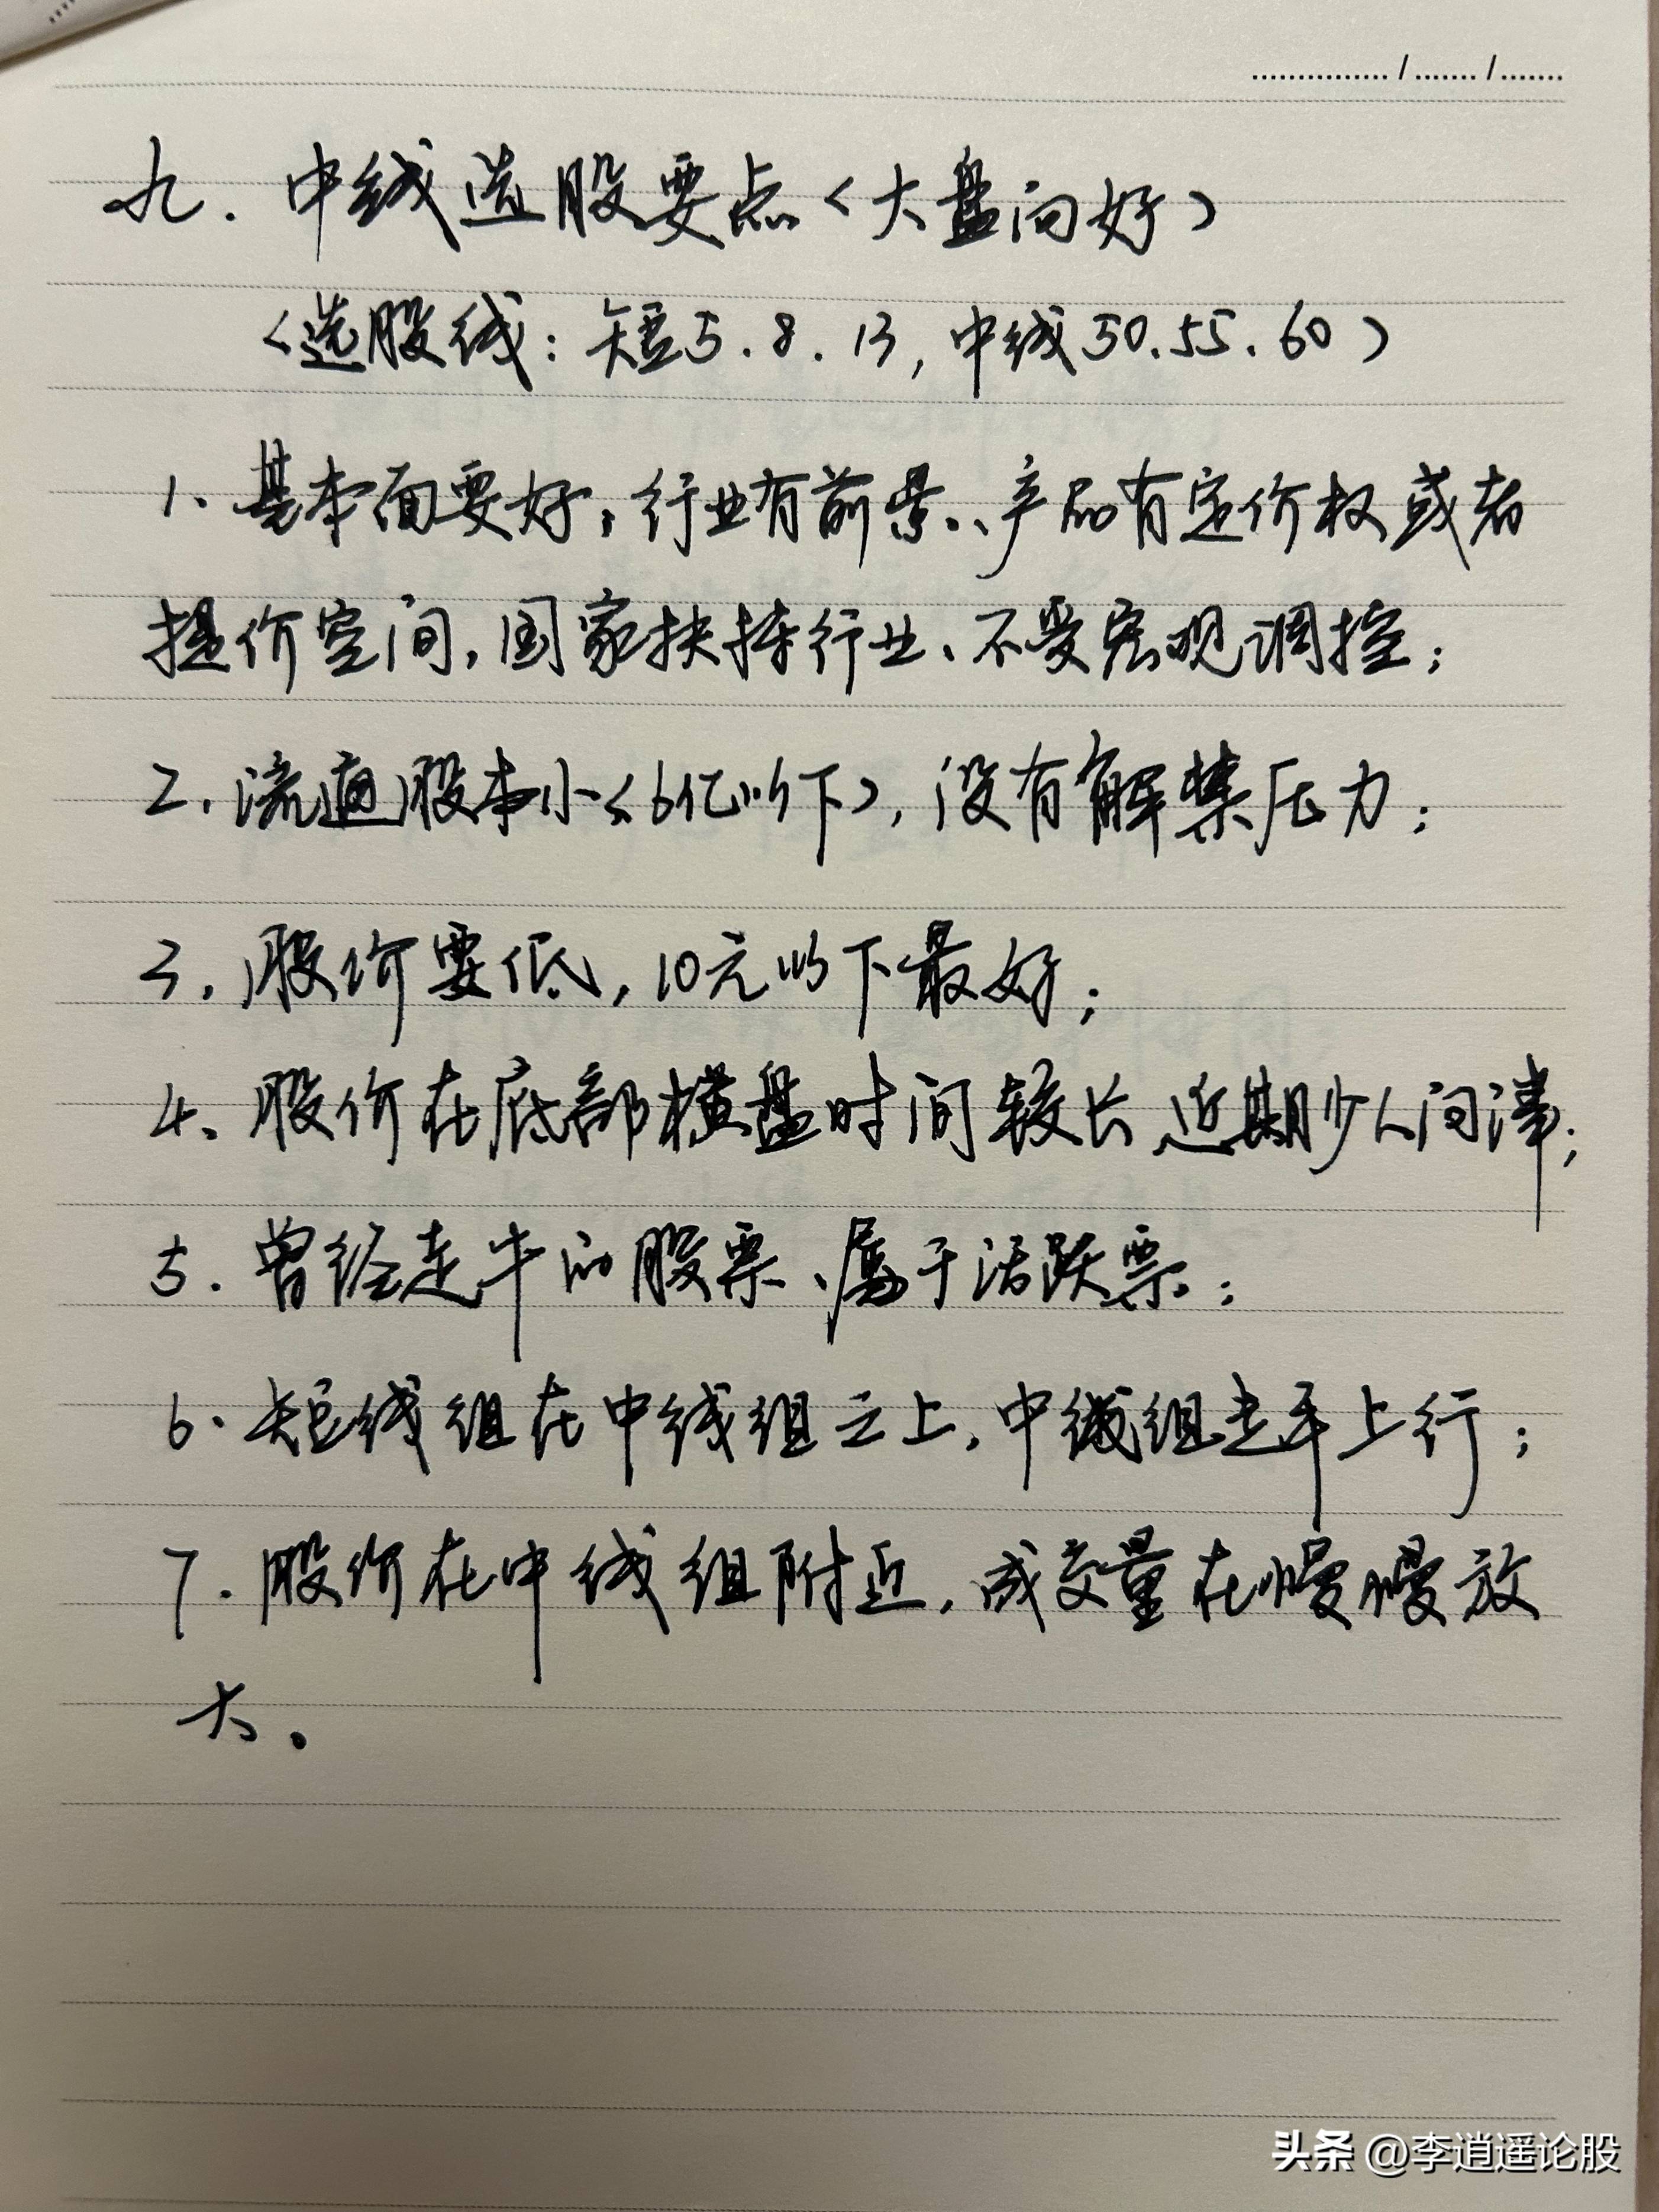 ............... / ....... / .......
九.中线选股要点<大盘向好>
<选股线:短5.8.13,中线50.55.60>
1、基本面要好,行业有前景、产品有定价权或者
提价空间,国家扶持行业、不受宏观调控;
2.流通股本小<6亿以下>,没有解禁压力;
3.股价要低,10元以下最好;
4、股价在底部横盘时间较长、近期少人问津;
5.曾经走牛的股票、属于活跃票;
6、短线组在中线组之上,中线组走平上行;
7.股价在中线组附近,成交量在慢慢放
大。
头条 @李逍遥论股